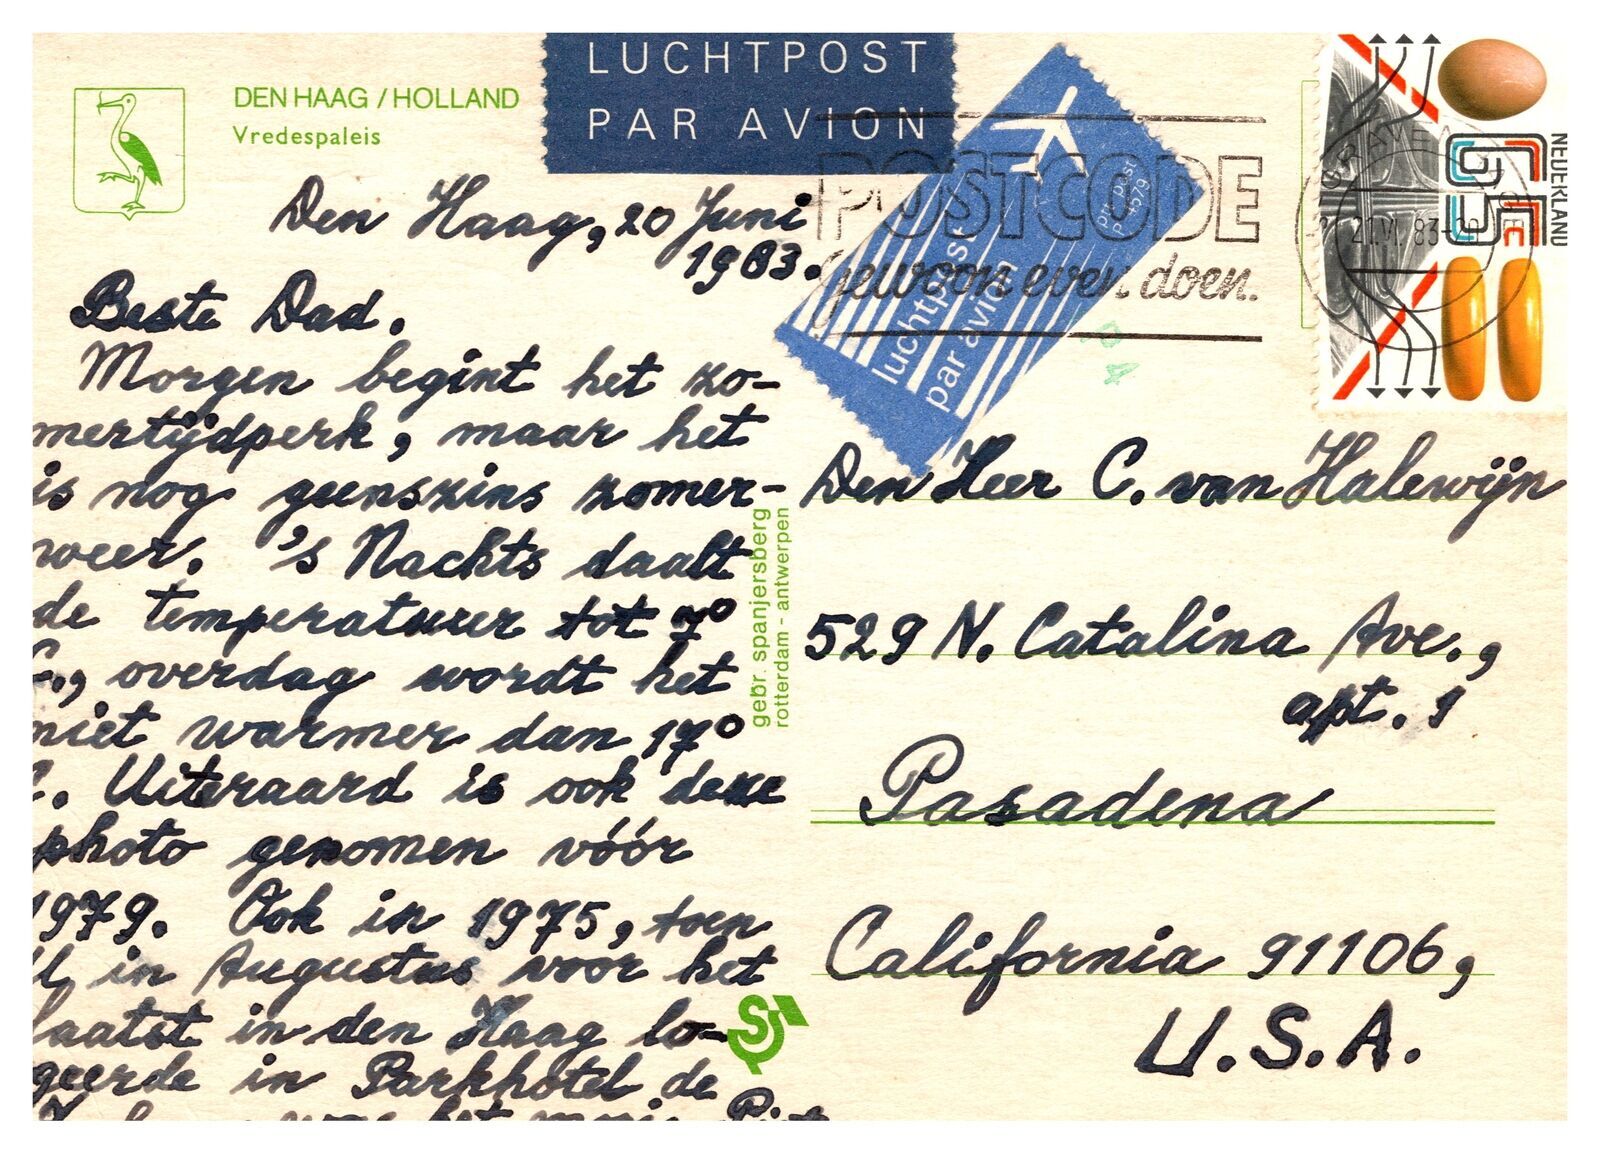 LUCHTPOST
PAR AVION
DEN HAAG / HOLLAND
Vredespaleis
Den Haag, 20 Juni
1983.
Beste Dad.
Morgen begint het zo-
mertijdperk, maar het
is nog geenszins zomer-
weer. 's Nachts daalt
de temperatuur tot 7°
C., overdag wordt het
niet warmer dan 17°
C. Uiteraard is ook deze
photo genomen vóór
1979. Ook in 1975, toen
in Augustus voor het
laatst in den Haag lo-
geerde in Parkhotel de
was het mooi
gebr. spanjersberg
rotterdam - antwerpen
S
luchtpost
par avion
pttpost
P 4579
POSTCODE
gewoon even doen.
21.VI.83
NEDERLAND
65c
Den Heer C. van Halewijn
529 N. Catalina Ave.,
apt. 1
Pasadena
California 91106,
U.S.A.